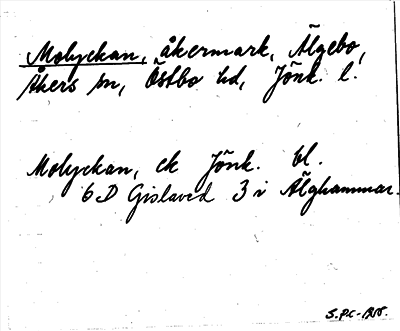 Molyckan, åkermark, Älgebo,
Åkers sn, Östbo hd, Jönk. l.
Molyckan, ek Jönk. bl.
6D Gislaved 3 i Älghammar.
S.P.C-1918.